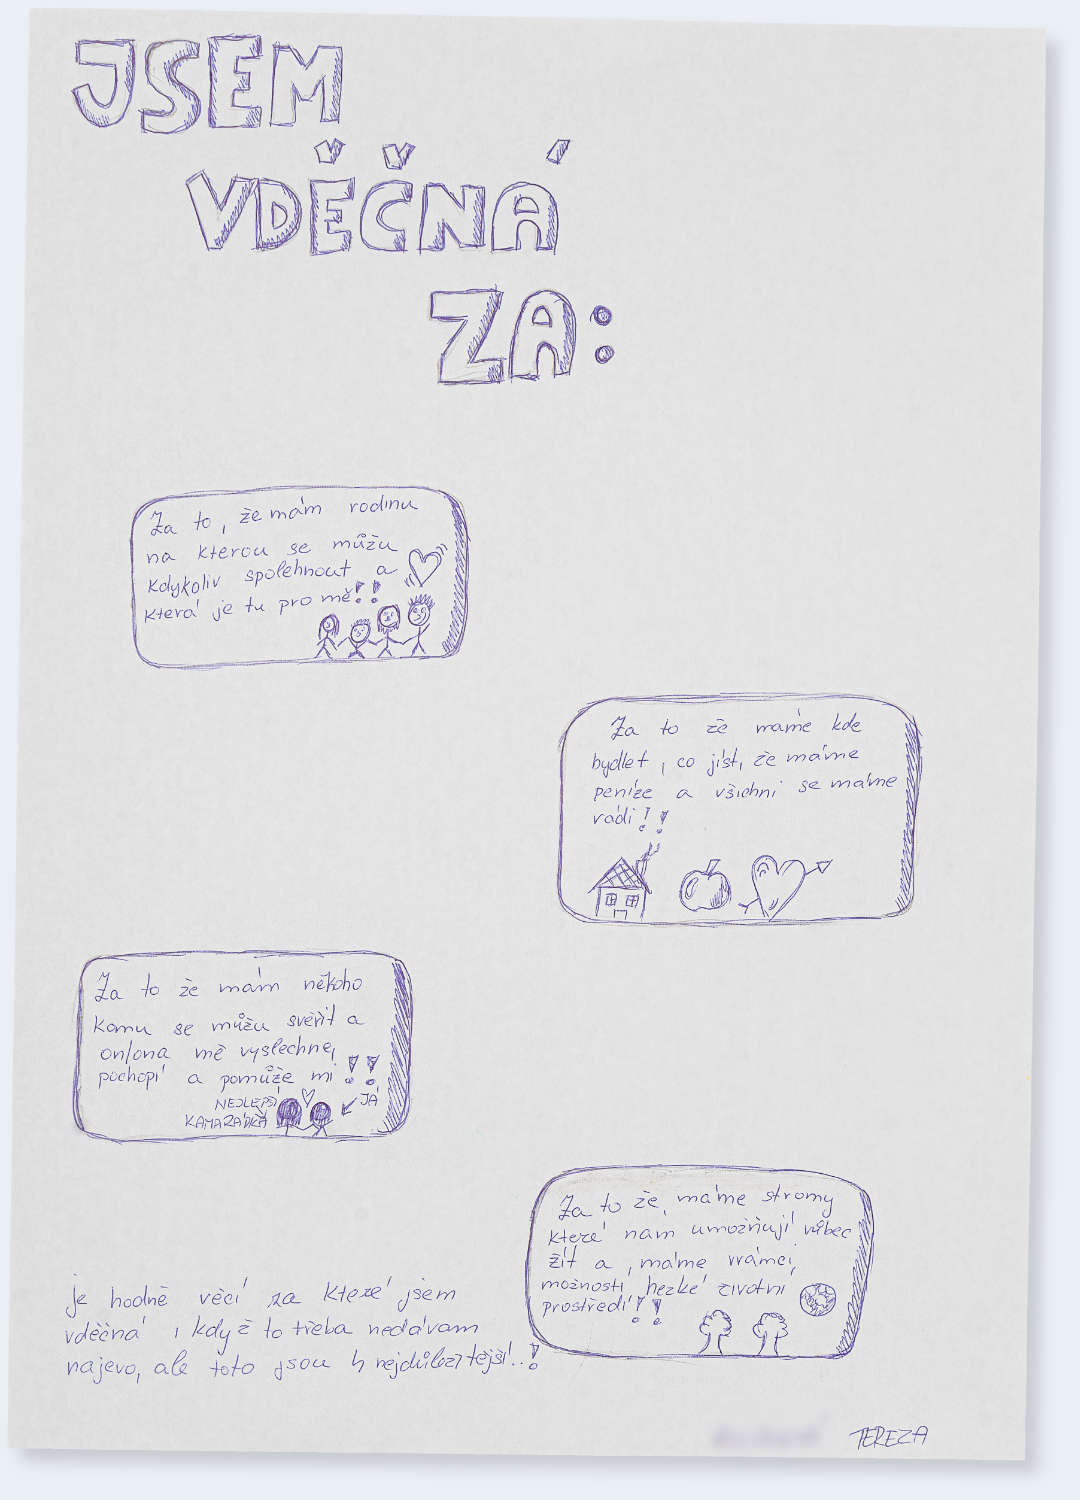 JSEM
VDĚČNÁ
ZA:
Za to, že mám rodinu
na kterou se můžu
kdykoliv spolehnout a
která je tu pro mě!!
Za to že máme kde
bydlet, co jíst, že máme
peníze a všichni se máme
rádi!!
Za to že mám někoho
komu se můžu svěřit a
on/ona mě vyslechne,
pochopí a pomůže mi!!
NEJLEPŠÍ
KAMARÁDKA
JÁ
Za to že, máme stromy
které nam umožňují vůbec
žít a, máme
možnosti hezké životní
prostředí!!
je hodně věcí za které jsem
vděčná i když to třeba nedávam
najevo, ale toto jsou ty nejdůležitější..!
TEREZA